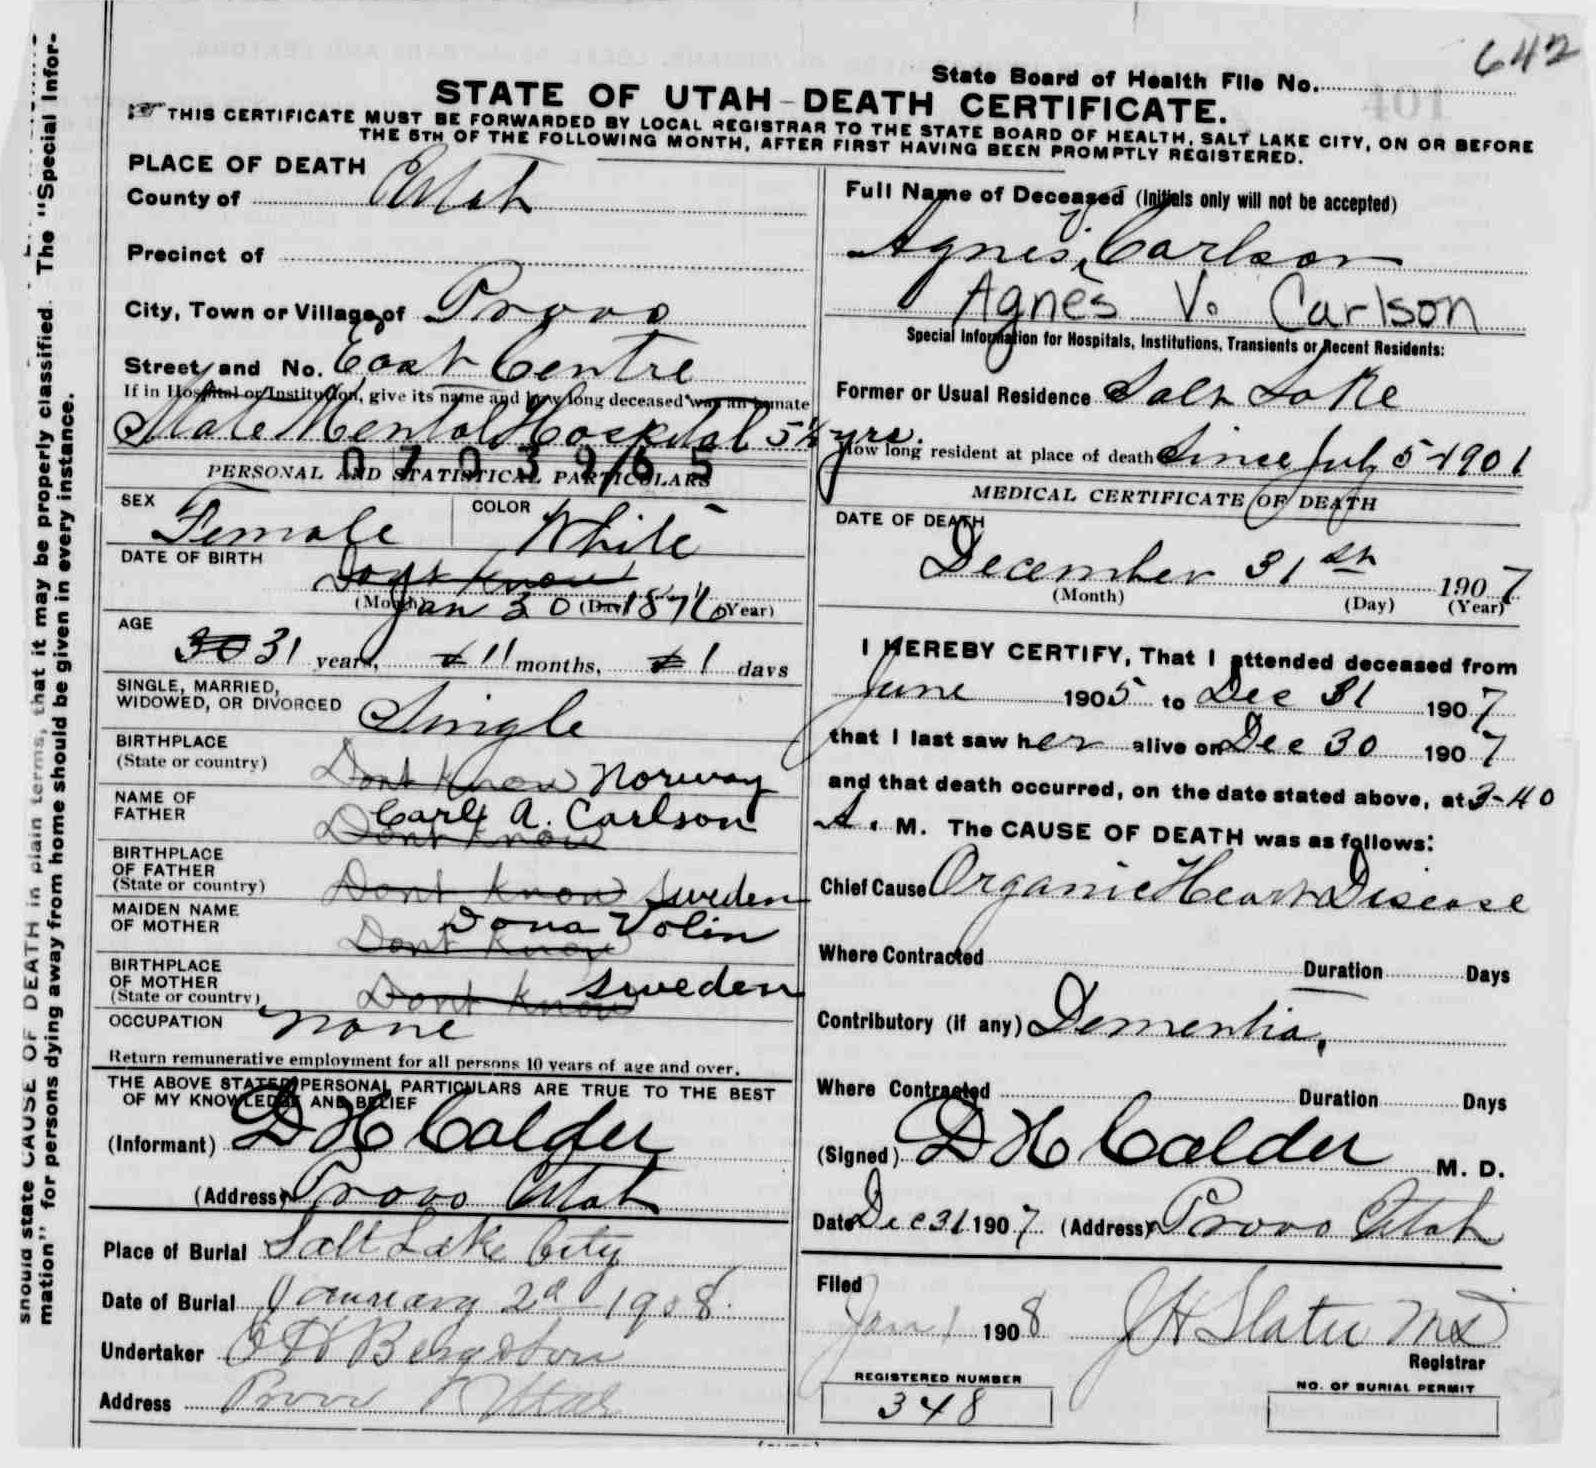 642
State Board of Health File No.
STATE OF UTAH-DEATH CERTIFICATE.
THIS CERTIFICATE MUST BE FORWARDED BY LOCAL REGISTRAR TO THE STATE BOARD OF HEALTH, SALT LAKE CITY, ON OR BEFORE
THE 5TH OF THE FOLLOWING MONTH, AFTER FIRST HAVING BEEN PROMPTLY REGISTERED.
should state CAUSE OF DEATH in plain terms, that it may be properly classified. The "Special Infor-
mation" for persons dying away from home should be given in every instance.
PLACE OF DEATH
County of Utah
Precinct of
City, Town or Village of Provo
Street and No. East Centre
If in Hospital or Institution, give its name and how long deceased was an inmate
State Mental Hospital 5½ yrs.
0703965
PERSONAL AND STATISTICAL PARTICULARS
SEX Female
COLOR White
DATE OF BIRTH
Dont Know
(Month) Jan 30 (Day) 1876 (Year)
AGE
30 31 years, 11 months, 1 days
SINGLE, MARRIED,
WIDOWED, OR DIVORCED Single
BIRTHPLACE
(State or country) Dont Know Norway
NAME OF
FATHER Carl A. Carlson
Dont Know
BIRTHPLACE
OF FATHER
(State or country) Dont Know Sweden
MAIDEN NAME
OF MOTHER Dona Volin
Dont Know
BIRTHPLACE
OF MOTHER
(State or country) Dont Know Sweden
OCCUPATION None
Return remunerative employment for all persons 10 years of age and over.
THE ABOVE STATED PERSONAL PARTICULARS ARE TRUE TO THE BEST
OF MY KNOWLEDGE AND BELIEF
(Informant) D H Calder
(Address) Provo Utah
Place of Burial Salt Lake City
Date of Burial January 2d 1908.
Undertaker
Address Provo Utah
Full Name of Deceased (Initials only will not be accepted)
Agnes V Carlson
Agnes V. Carlson
Special Information for Hospitals, Institutions, Transients or Recent Residents:
Former or Usual Residence Salt Lake
How long resident at place of death Since July 5-1901
MEDICAL CERTIFICATE OF DEATH
DATE OF DEATH
December 31st 1907
(Month) (Day) (Year)
I HEREBY CERTIFY, That I attended deceased from
June 1905 to Dec 31 1907
that I last saw her alive on Dec 30 1907
and that death occurred, on the date stated above, at 3-40
A. M. The CAUSE OF DEATH was as follows:
Chief Cause Organic Heart Disease
Where Contracted Duration Days
Contributory (if any) Dementia,
Where Contracted Duration Days
(Signed) D H Calder M. D.
Date Dec 31 1907 (Address) Provo Utah
Filed
Jan 1 1908 J H Slater MD
Registrar
REGISTERED NUMBER
348
NO. OF BURIAL PERMIT